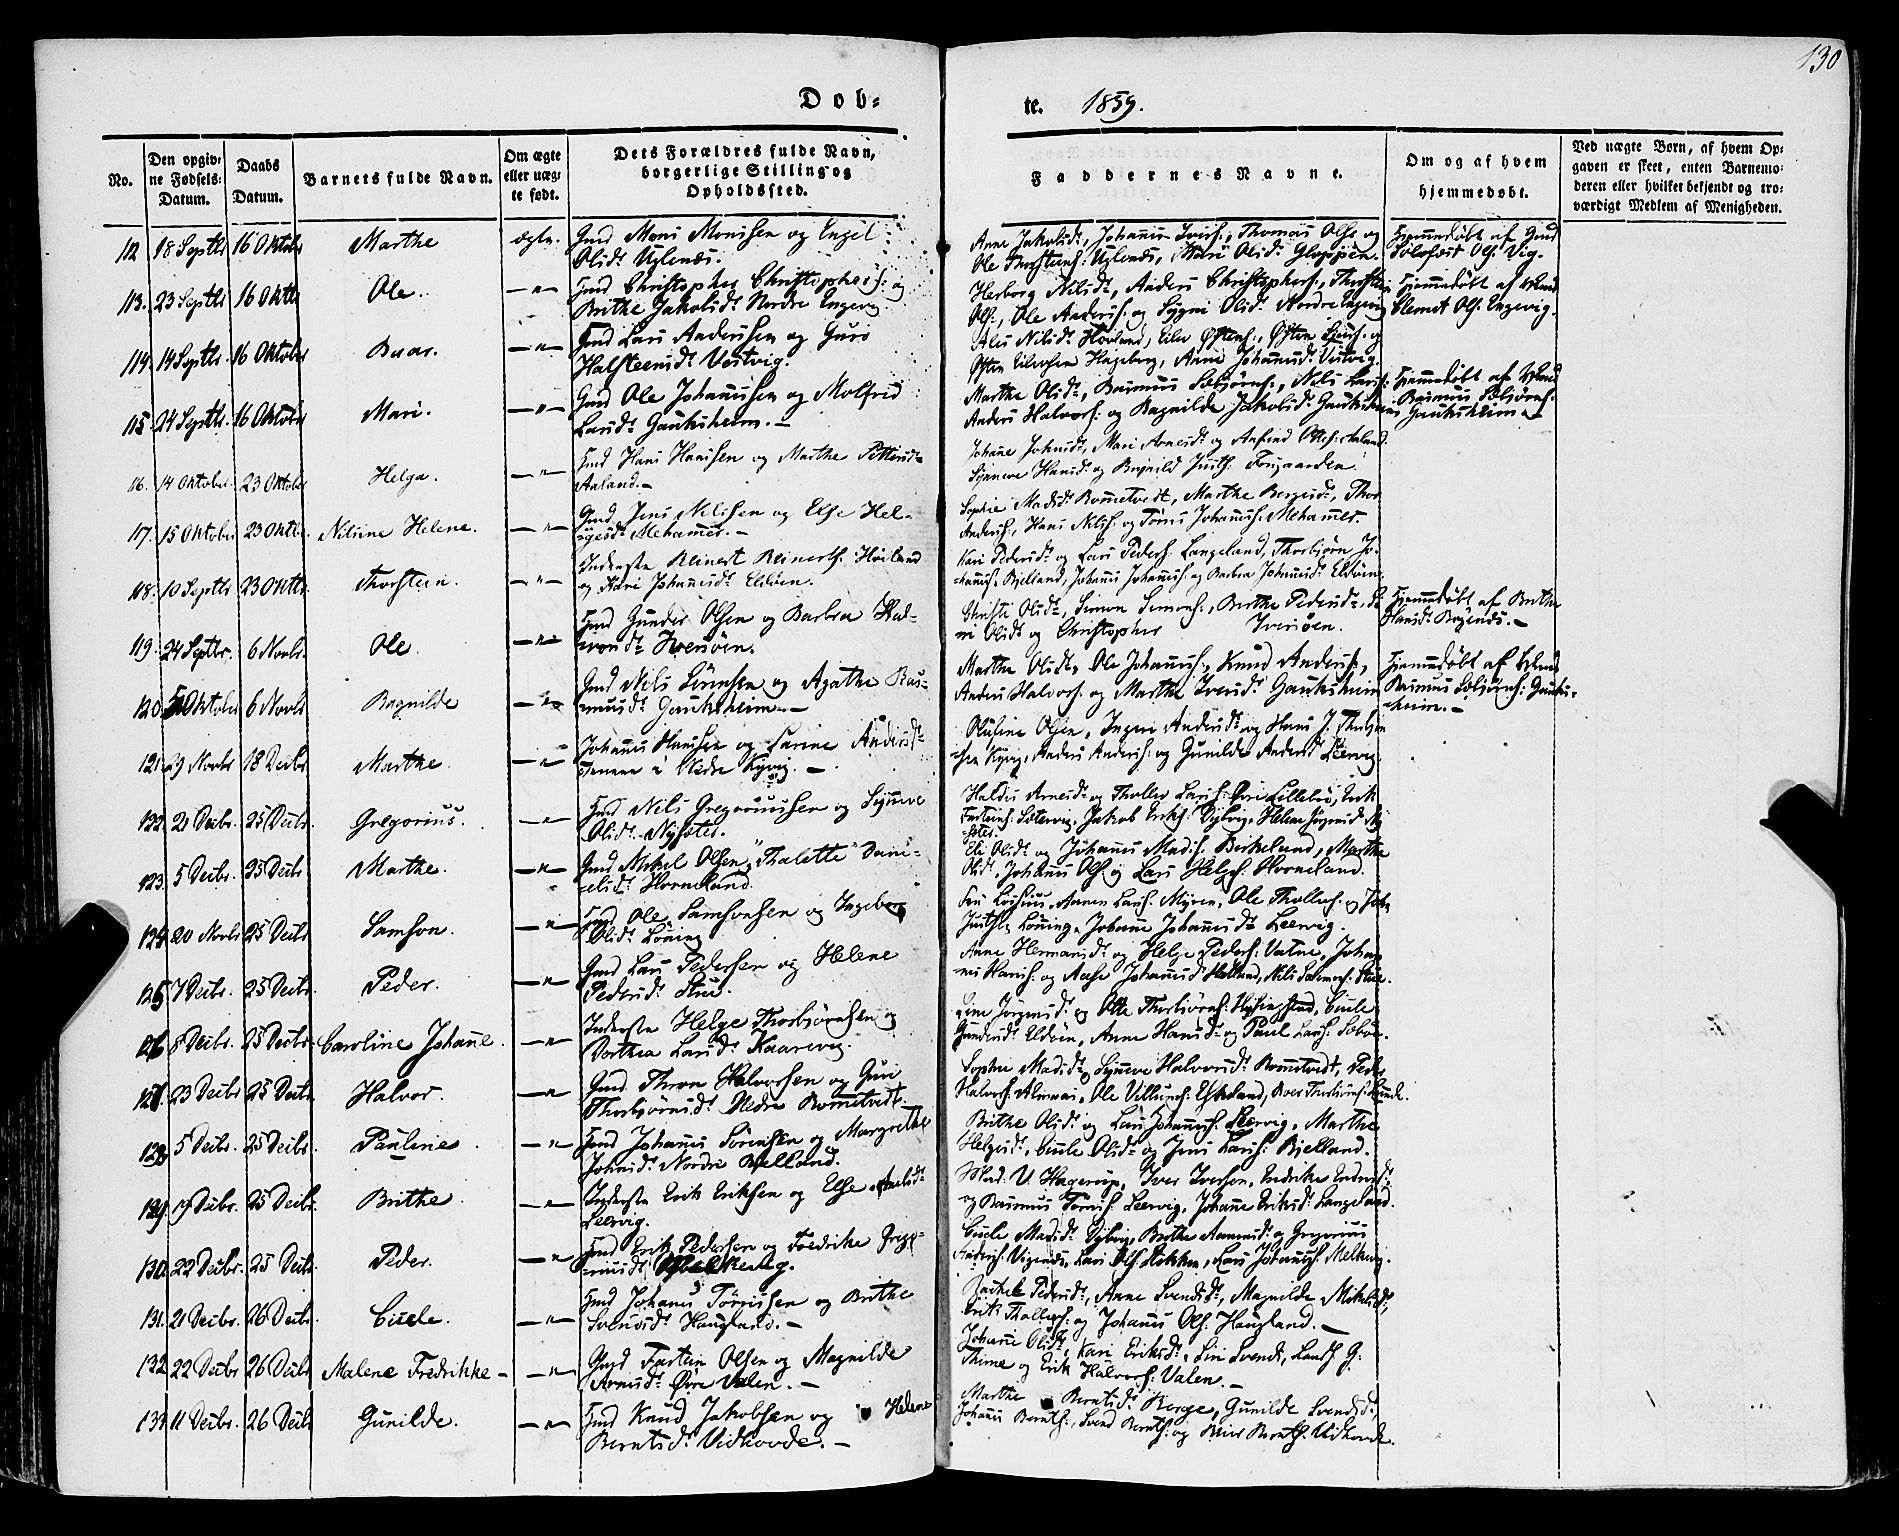 130
Dob-
te. 1859.
No.
Den opgiv-
ne Fødsels-
Datum.
Daabs
Datum.
Barnets fulde Navn.
Om ægte
eller uæg-
te født.
Dets Forældres fulde Navn,
borgerlige Stilling og
Opholdssted.
Faddernes Navne.
Om og af hvem
hjemmedøbt.
Ved uægte Børn, af hvem Op-
gaven er skeet, enten Barnemo-
deren eller hvilket bekjendt og tro-
værdigt Medlem af Menigheden.
112 18 Septbr 16 Oktober Marthe ægte. Gmd Mons Monssen og Engel
Olsdr Uglenæs.
Anne Jakobsdr, Johannes Iversen, Thomas Ols. og
Ole Thorsteins. Uglenæs, Mari Olsdr Gloppen.
Hjemmedøbt af Gmd
Ols. Vig.
113. 23 Septbr 16 Oktbr Ole. —"— Gmd Christopher Christophers. og
Brithe Jakobsdr Nordre Engevig
Herborg Nilsdr, Anders Christophers., Thorstein
Ols., Ole Anders. og Sygni Olsdr Nordre Engevig
Hjemmedøbt af
Clemet Ols. Engevig.
114. 14 Septbr. 16 Oktober Baar. —"— Gmd Lars Anderssen og Guro
Halsteensdr Vestvig.
Nilsdr Hovland, Eilev Østens., Østen
Østen Eilevsen Hageberg, Anne Johannesdr Vestvig
115. 24 Septbr. 16 Oktober Mari. —"— Gmd Ole Johannessen og Molfrid
Larsdr Gauksheim. —
Marthe Olsdr, Rasmus Sæbjørns., Nils Lars.
Anders Halvors. og Ragnilde Jakobsdr Gauksheim
Hjemmedøbt af
Rasmus Sæbjørns.
Gauksheim. —
116. 14 Oktober. 23 Oktober Helga. —"— Gmd Hans Hanssen og Marthe Pettersdr
Aaland. —
Johane Johnsdr, Mari Arnesdr og Anfind Ottes. Aaland
Synneve Hansdr og Brynild Fougaarden.
117. 15 Oktober 23 Oktbr. Nilsine Helene. —"— Gmd Jens Nilssen og Else Hel-
gesdr Mehamer. —
Sophie Madsdr Rometvedt, Marthe Børgesdr, Thor
Anders., Hans Nils. og Tørres Johanness. Mehamer.
118. 10 Septbr 23 Oktbr. Thorstein. —"— Inderste Reinert Reinerts. Høiland
og Kari Johannesdr Eldøen.
Kari Pedersdr og Lars Peders. Langeland, Thorbjørn Jo-
hanness. Bjelland, Johannes Johanness. og Barbra Johannesdr Eldøen
119. 24 Septbr. 6 Novbr. Ole. —"— Gmd Gunder Olsen og Barbra Hal-
vorsdr Iversøen.
Christi Olsdr, Simon Simons., Brithe Pedersdr, Si-
ri Olsdr og Christopher Iversøen.
Hjemmedøbt af Brithe
Hansdr Bogends. —
120. 5 Oktober 6 Novbr Ragnilde —"— Gmd Nils Sørensen og Agathe Ras-
musdr Gauksheim. —
Marthe Olsdr, Ole Johanness., Knud Anders.,
Anders Halvors. og Marthe Iversdr Gauksheim
Hjemmedøbt af
Rasmus Sæbjørns. Gauks-
heim. —
121. 29 Novbr 18 Decbr Marthe. —"— Johannes Hanssen og Sarine Andersdr
i Nedre Kyvig. —
Olufine Olsen, Ingeri Andersdr og Hans J.
Kyvig, Anders Anders. og Gunilde Andersdr Leervig
122. 21 Decbr. 25 Decbr. Gregorius. —"— Gmd Nils Gregoriussen og Synneve
Olsdr Nysæter.
Haldis Arnesdr og Tholler Lars. Øvre Lillebø, Erik
Fartens. Sætervig, Jakob Eriks. Dybvig, Helene Jørgensdr Ny-
sæter.
123. 5 Decbr. 25 Decbr Marthe. —"— Gmd Mikel Olsen, "Thalette" Dani-
elsdr Horneland.
Eli Olsdr og Johannes Mads. Birkeland, Marthe
Olsdr, Johannes Ols. og Lars Helges. Horneland.
124. 20 Novbr 25 Decbr Samson. —"— Gmd Ole Samsonsen og Ingeborg
Olsdr Løning
Lars. Myren, Ole Thollers. og John
Løning, Johanne Johannesdr Leervig.
125. 7 Decbr. 25 Decbr. Peder. —"— Gmd Lars Pedersen og Helene
Pedersdr Stue.
Anne Hermansdr og Helge Peders. Vatne, Johan-
nes Hans. og Aase Johannesdr Hovland, Nils Salomons. Stue.
126. 8 Decbr. 25 Decbr. Caroline Johane. —"— Inderste Helge Thorbjørnsen og
Dorthea Larsdr Kaarevig.
Line Jørgensdr og Otte Thorbjørns. Cecile
Gundersdr Eldøen, Anne Hansdr og Paul Lars. Sæbøe.
127. 23 Decbr. 25 Decbr. Halvor. —"— Gmd. Thron Halvorssen og Guri
Thorbjørnsdr Nedre Rometvedt.
Sophie Madsdr, Synneve Halvorsdr Rometvedt, Peder
Halvors. Almaas, Ole Villums. Eskeland, Baar Thorbjørns.
128. 5 Decbr. 25 Decbr. Pauline. —"— Gmd Johannes Sørensen og Margrethe
Johnsdr Nordre Bjelland.
Brithe Olsdr og Lars Johanness. Leervig, Marthe
Helgesdr, Cecile Olsdr og Jens Lars. Bjelland.
129. 19 Decbr. 25 Decbr. Brithe. —"— Inderste Erik Eriksen og Else
Leervig.
Mad. V. Hagerup, Iver Iversen, Endrikke
og Rasmus Tørres. Leervig, Johane Eriksdr Langeland.
130. 22 Decbr. 25 Decbr. Peder. —"— Gmd Erik Pedersen og Fredrike Greg-
oriusdr Melkevig.
Cecile Madsdr Dybvig, Brithe og Gregorius
Anders. Vigends, Lars Ols. Stokken, Lars Johanness. Melkevig.
131. 21 Decbr. 26 Decbr. Cicele. —"— Gmd Johanes Tørrissen og Brithe
Svendsdr Haugland. —
Rachel Pedersdr, Anne Svendsdr, Magnilde Mikelsdr,
Erik Thollers. og Johannes Ols. Haugland. —
132. 22 Decbr 26 Decbr Malene Fredrikke —"— Gmd Fartein Olsen og Magnilde
Arnesdr Øvre Valen. —
Johane Olsdr, Kari Eriksdr, Siri Svends, G.
Thime og Erik Halvors. Valen. —
133. 11 Decbr. 26 Decbr Gunilde. —"— Gmd Knud Jakobsen og Helene
Berntsdr Vidhovde. —
Marthe Berntsdr Børge, Gunilde Svendsdr,
Johannes Bernts., Svend Bernts. og Bernts. Vidhovde.